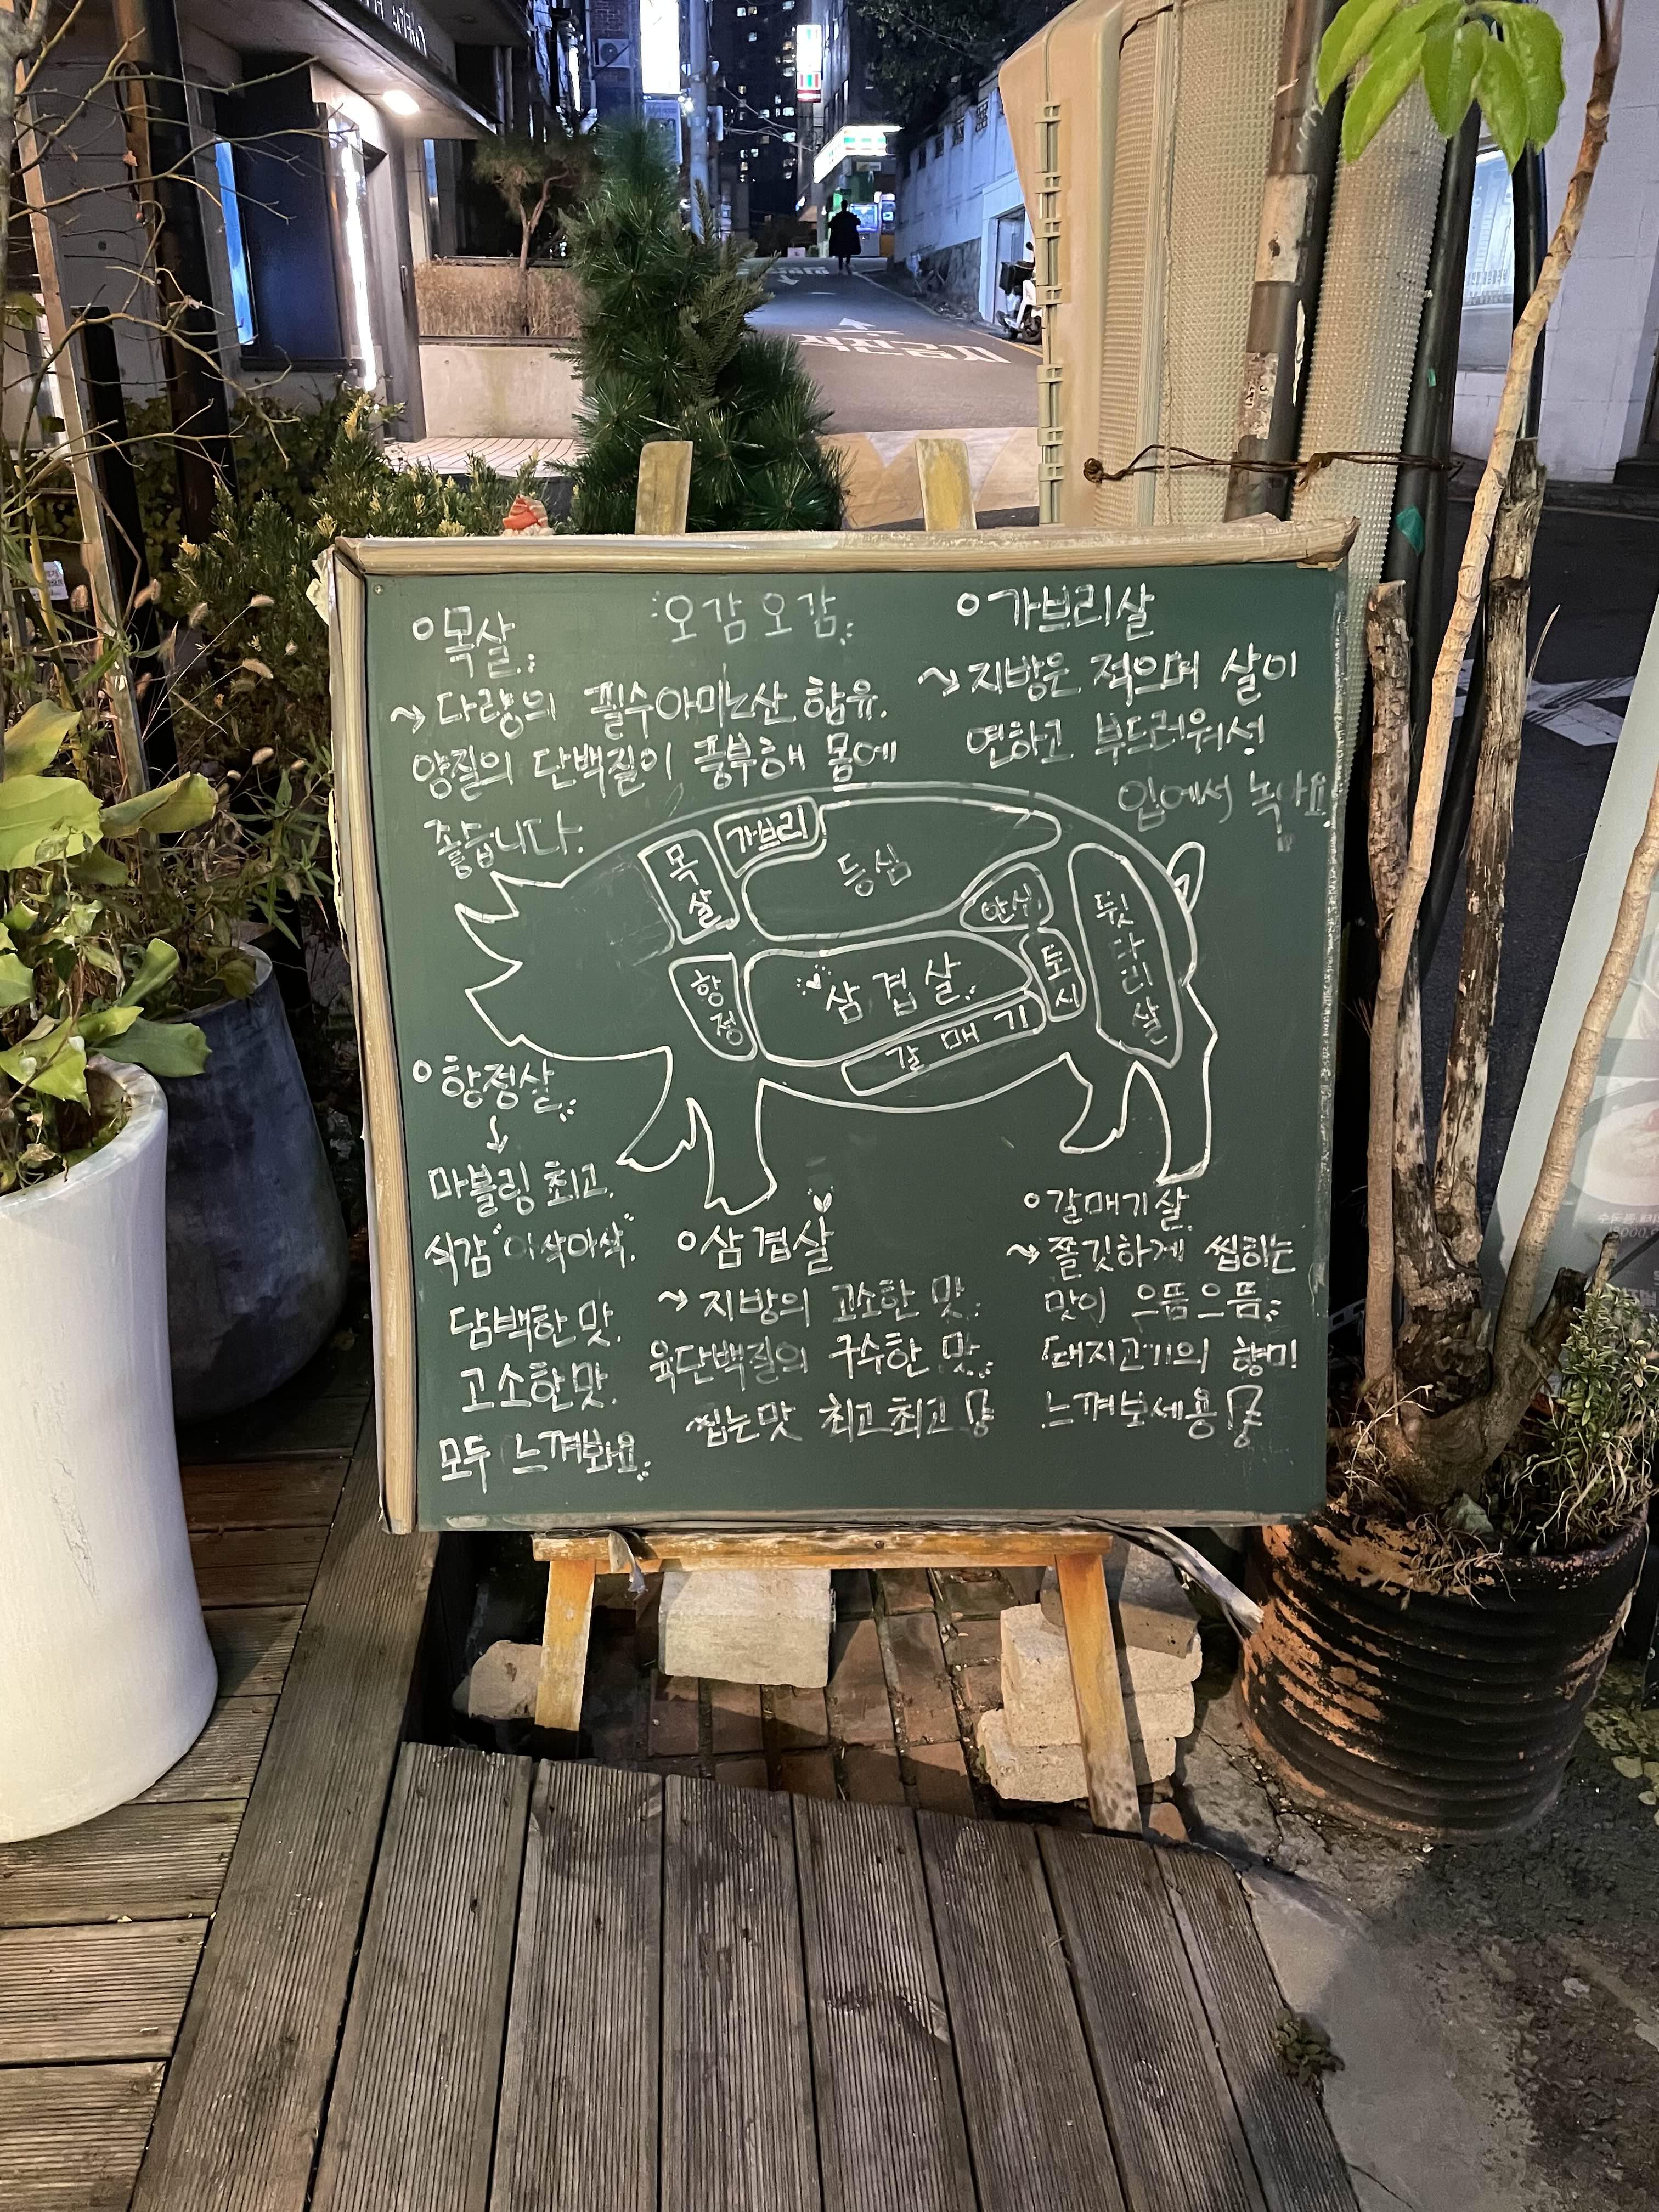 오감오감
목살
다량의 필수아미노산 함유.
양질의 단백질이 풍부해 몸에
좋습니다.
가브리살
지방은 적으며 살이
연하고 부드러워서
입에서 녹아요
목살
가브리
등심
안심
뒷다리살
항정
삼겹살
토시
갈매기
항정살
마블링 최고.
식감 "아삭아삭"
담백한 맛.
고소한맛.
모두 느껴봐요
삼겹살
지방의 고소한 맛.
육단백질의 구수한 맛.
씹는맛 최고최고
갈매기살
쫄깃하게 씹히는
맛이 으뜸으뜸
돼지고기의 향미
느껴보세용